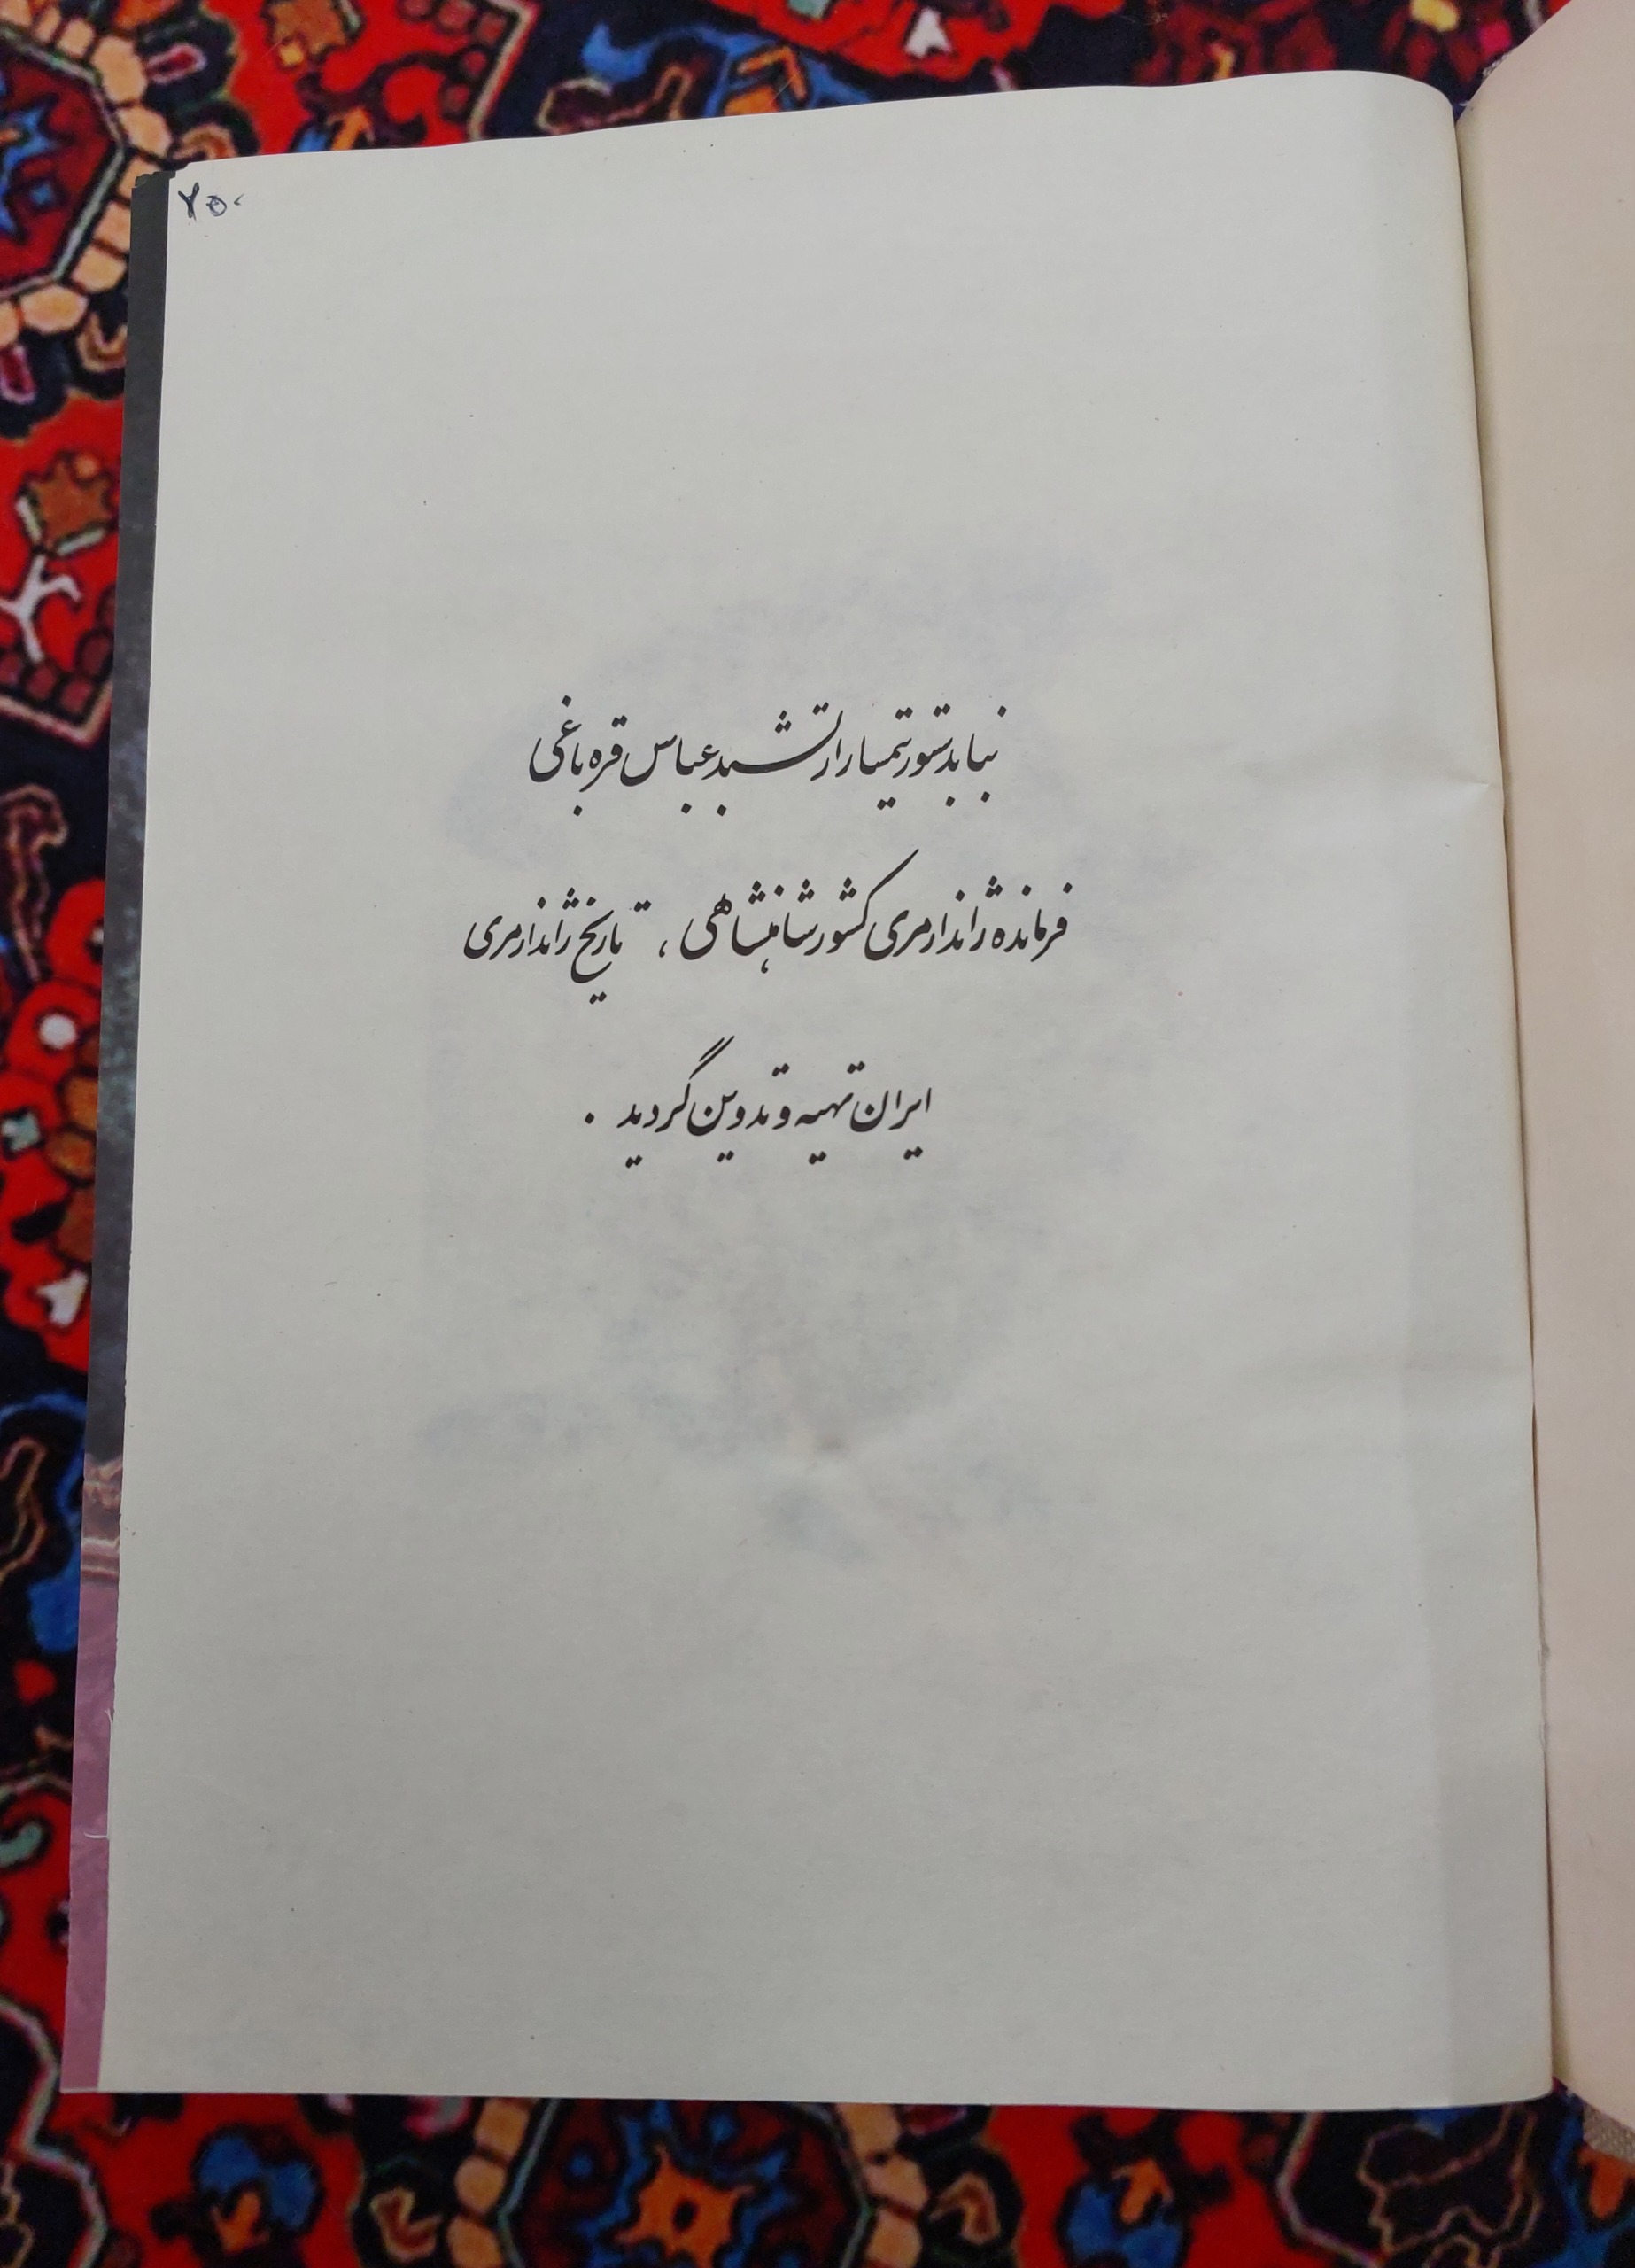 ۲۵۰
بنا بدستور تیمسار ارتشبد عباس قره باغی
فرمانده ژاندارمری کشور شاهنشاهی ، تاریخ ژاندارمری
ایران تهیه و تدوین گردید .